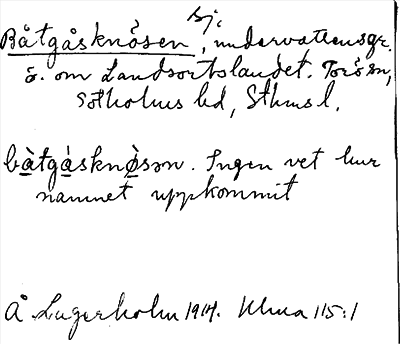 sj.
Båtgåsknösen, undervattensgr.
ö. om Landsortslandet. Torö sn,
Sotholms hd, Sthms l.
bàtgàsknø̀sən. Ingen vet hur
namnet uppkommit
Å Lagerholm 1914. Uhua 115:1